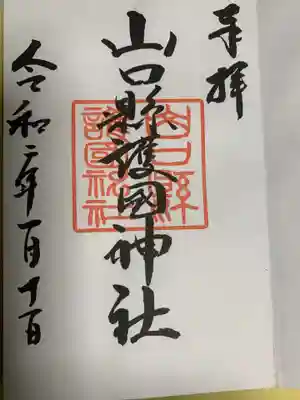 奉拝
山口縣護國神社
山口縣護國神社
令和二年一月十一日